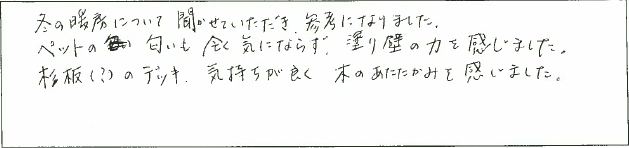 冬の暖房について聞かせていただき、参考になりました。
ペットの匂いも全く気にならず、塗り壁の力を感じました。
杉板(?)のデッキ、気持ちが良く木のあたたかみを感じました。